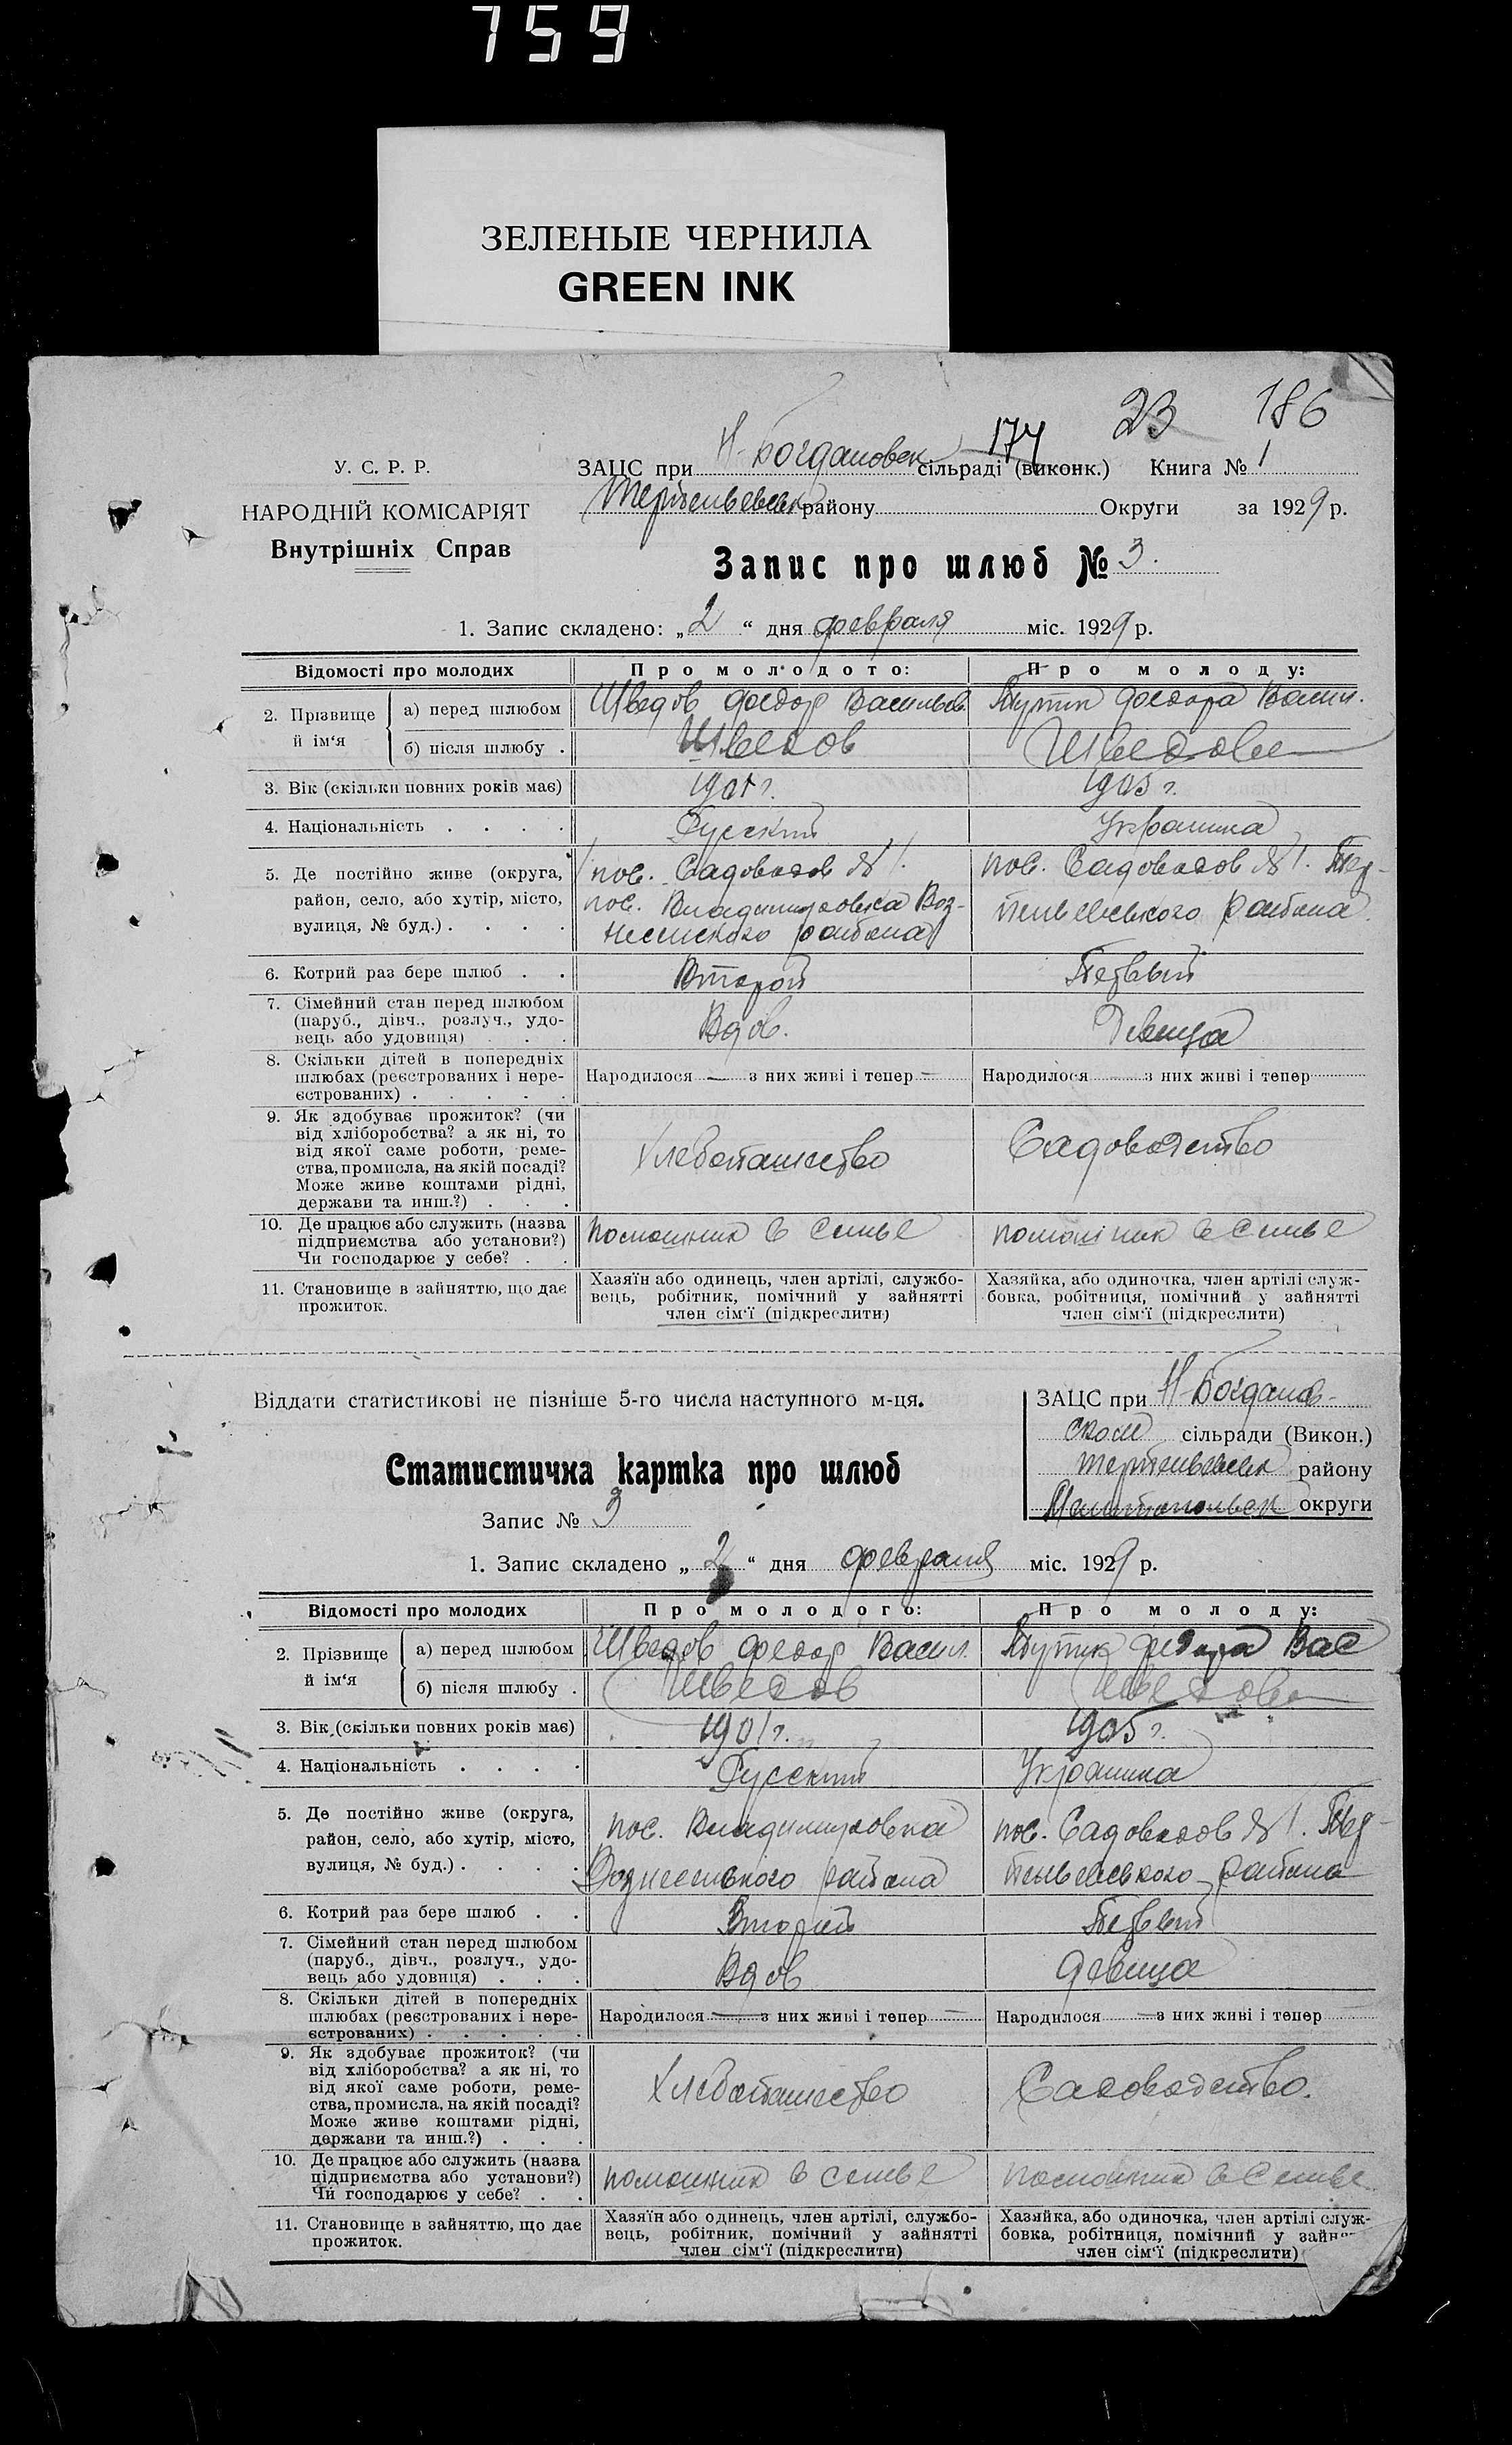 759
ЗЕЛЕНЫЕ ЧЕРНИЛА
GREEN INK
23 186
174
У. С. Р. Р.
НАРОДНІЙ КОМІСАРІЯТ
Внутрішніх Справ
ЗАЦС при Н-Богдановск сільраді (виконк.) Книга № 1
району Округи за 1929 р.
Запис про шлюб № 3.
1. Запис складено: „2“ дня февраля міс. 1929 р.
Відомості про молодих Про молодого: Про молоду:
2. Прізвище й ім‘я а) перед шлюбом Шведов Федор Васильев. Федора Васил.
б) після шлюбу . Шведов Шведова
3. Вік (скільки повних років має) 1901 г. 1905 г.
4. Національність . . . . Русский Украинка
5. Де постійно живе (округа, район, село, або хутір, місто, вулиця, № буд.) . . . .
пос. Садоводов № 1.
пос. Владимировка Воз-
несенского района
пос. Садоводов № 1. Тер-
пеньевского района.
6. Котрий раз бере шлюб . . Второй Первый
7. Сімейний стан перед шлюбом
(паруб., дівч., розлуч., удо-
вець або удовиця) . . . Вдов. Девица
8. Скільки дітей в попередніх
шлюбах (реєстрованих і нере-
єстрованих) . . . . . Народилося — з них живі і тепер — Народилося з них живі і тепер
9. Як здобуває прожиток? (чи
від хліборобства? а як ні, то
від якої саме роботи, реме-
ства, промисла, на якій посаді?
Може живе коштами рідні,
держави та инш.?) . . . Хлебопашество Садоводство
10. Де працює або служить (назва
підприємства або установи?)
Чи господарює у себе? . . помошник в семье помошник в семье
11. Становище в зайняттю, що дає
прожиток.
Хазяїн або одинець, член артілі, службо-
вець, робітник, помічний у зайнятті
член сім‘ї (підкреслити)
Хазяйка, або одиночка, член артілі служ-
бовка, робітниця, помічний у зайнятті
член сім‘ї (підкреслити)
Віддати статистикові не пізніше 5-го числа наступного м-ця.
ЗАЦС при Н-Богданов-
ском сільради (Викон.)
Терпеньевск району
Мелитопольск округи
Статистична картка про шлюб
Запис № 3
1. Запис складено „2“ дня февраля міс. 1929 р.
Відомості про молодих Про молодого: Про молоду:
2. Прізвище й ім‘я а) перед шлюбом Шведов Федор Васил. Федора Вас
б) після шлюбу . Шведов Шведова
3. Вік (скільки повних років має) 1901 г. 1905 г.
4. Національність . . . . Русский Украинка
5. Де постійно живе (округа, район, село, або хутір, місто, вулиця, № буд.) . . . .
пос. Владимировка
Вознесенского района
пос. Садоводов № 1. Тер-
пеньевского района
6. Котрий раз бере шлюб . . Второй Первый
7. Сімейний стан перед шлюбом
(паруб., дівч., розлуч., удо-
вець або удовиця) . . . Вдов Девица
8. Скільки дітей в попередніх
шлюбах (реєстрованих і нере-
єстрованих) . . . . . Народилося — з них живі і тепер — Народилося — з них живі і тепер
9. Як здобуває прожиток? (чи
від хліборобства? а як ні, то
від якої саме роботи, реме-
ства, промисла, на якій посаді?
Може живе коштами рідні,
держави та инш.?) . . . Хлебопашество Садоводство.
10. Де працює або служить (назва
підприємства або установи?)
Чи господарює у себе? . . помошник в семье помошник в семье
11. Становище в зайняттю, що дає
прожиток.
Хазяїн або одинець, член артілі, службо-
вець, робітник, помічний у зайнятті
член сім‘ї (підкреслити)
Хазяйка, або одиночка, член артілі служ-
бовка, робітниця, помічний у
член сім‘ї (підкреслити)